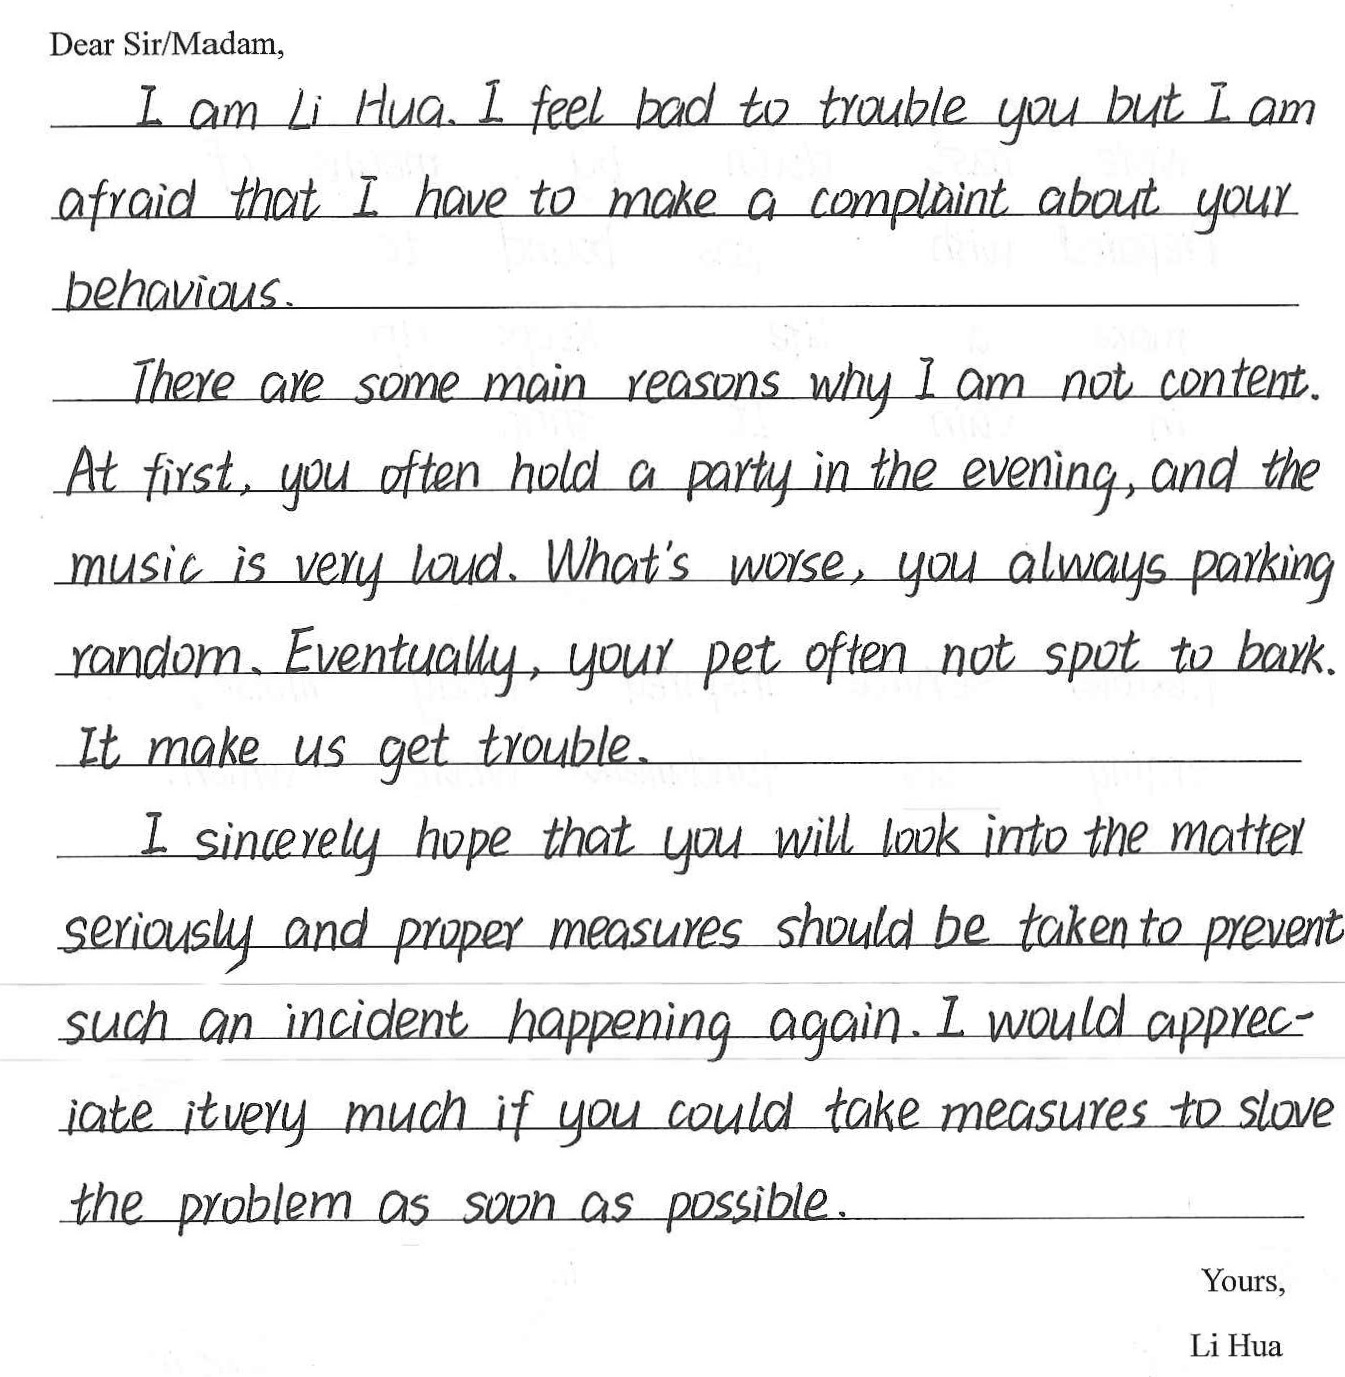 Dear Sir/Madam,
I am Li Hua. I feel bad to trouble you but I am
afraid that I have to make a complaint about your
behavious.
There are some main reasons why I am not content.
At first, you often hold a party in the evening, and the
music is very loud. What's worse, you always parking
random. Eventually, your pet often not spot to bark.
It make us get trouble.
I sincerely hope that you will look into the matter
seriously and proper measures should be taken to prevent
such an incident happening again. I would apprec-
iate it very much if you could take measures to slove
the problem as soon as possible.
Yours,
Li Hua